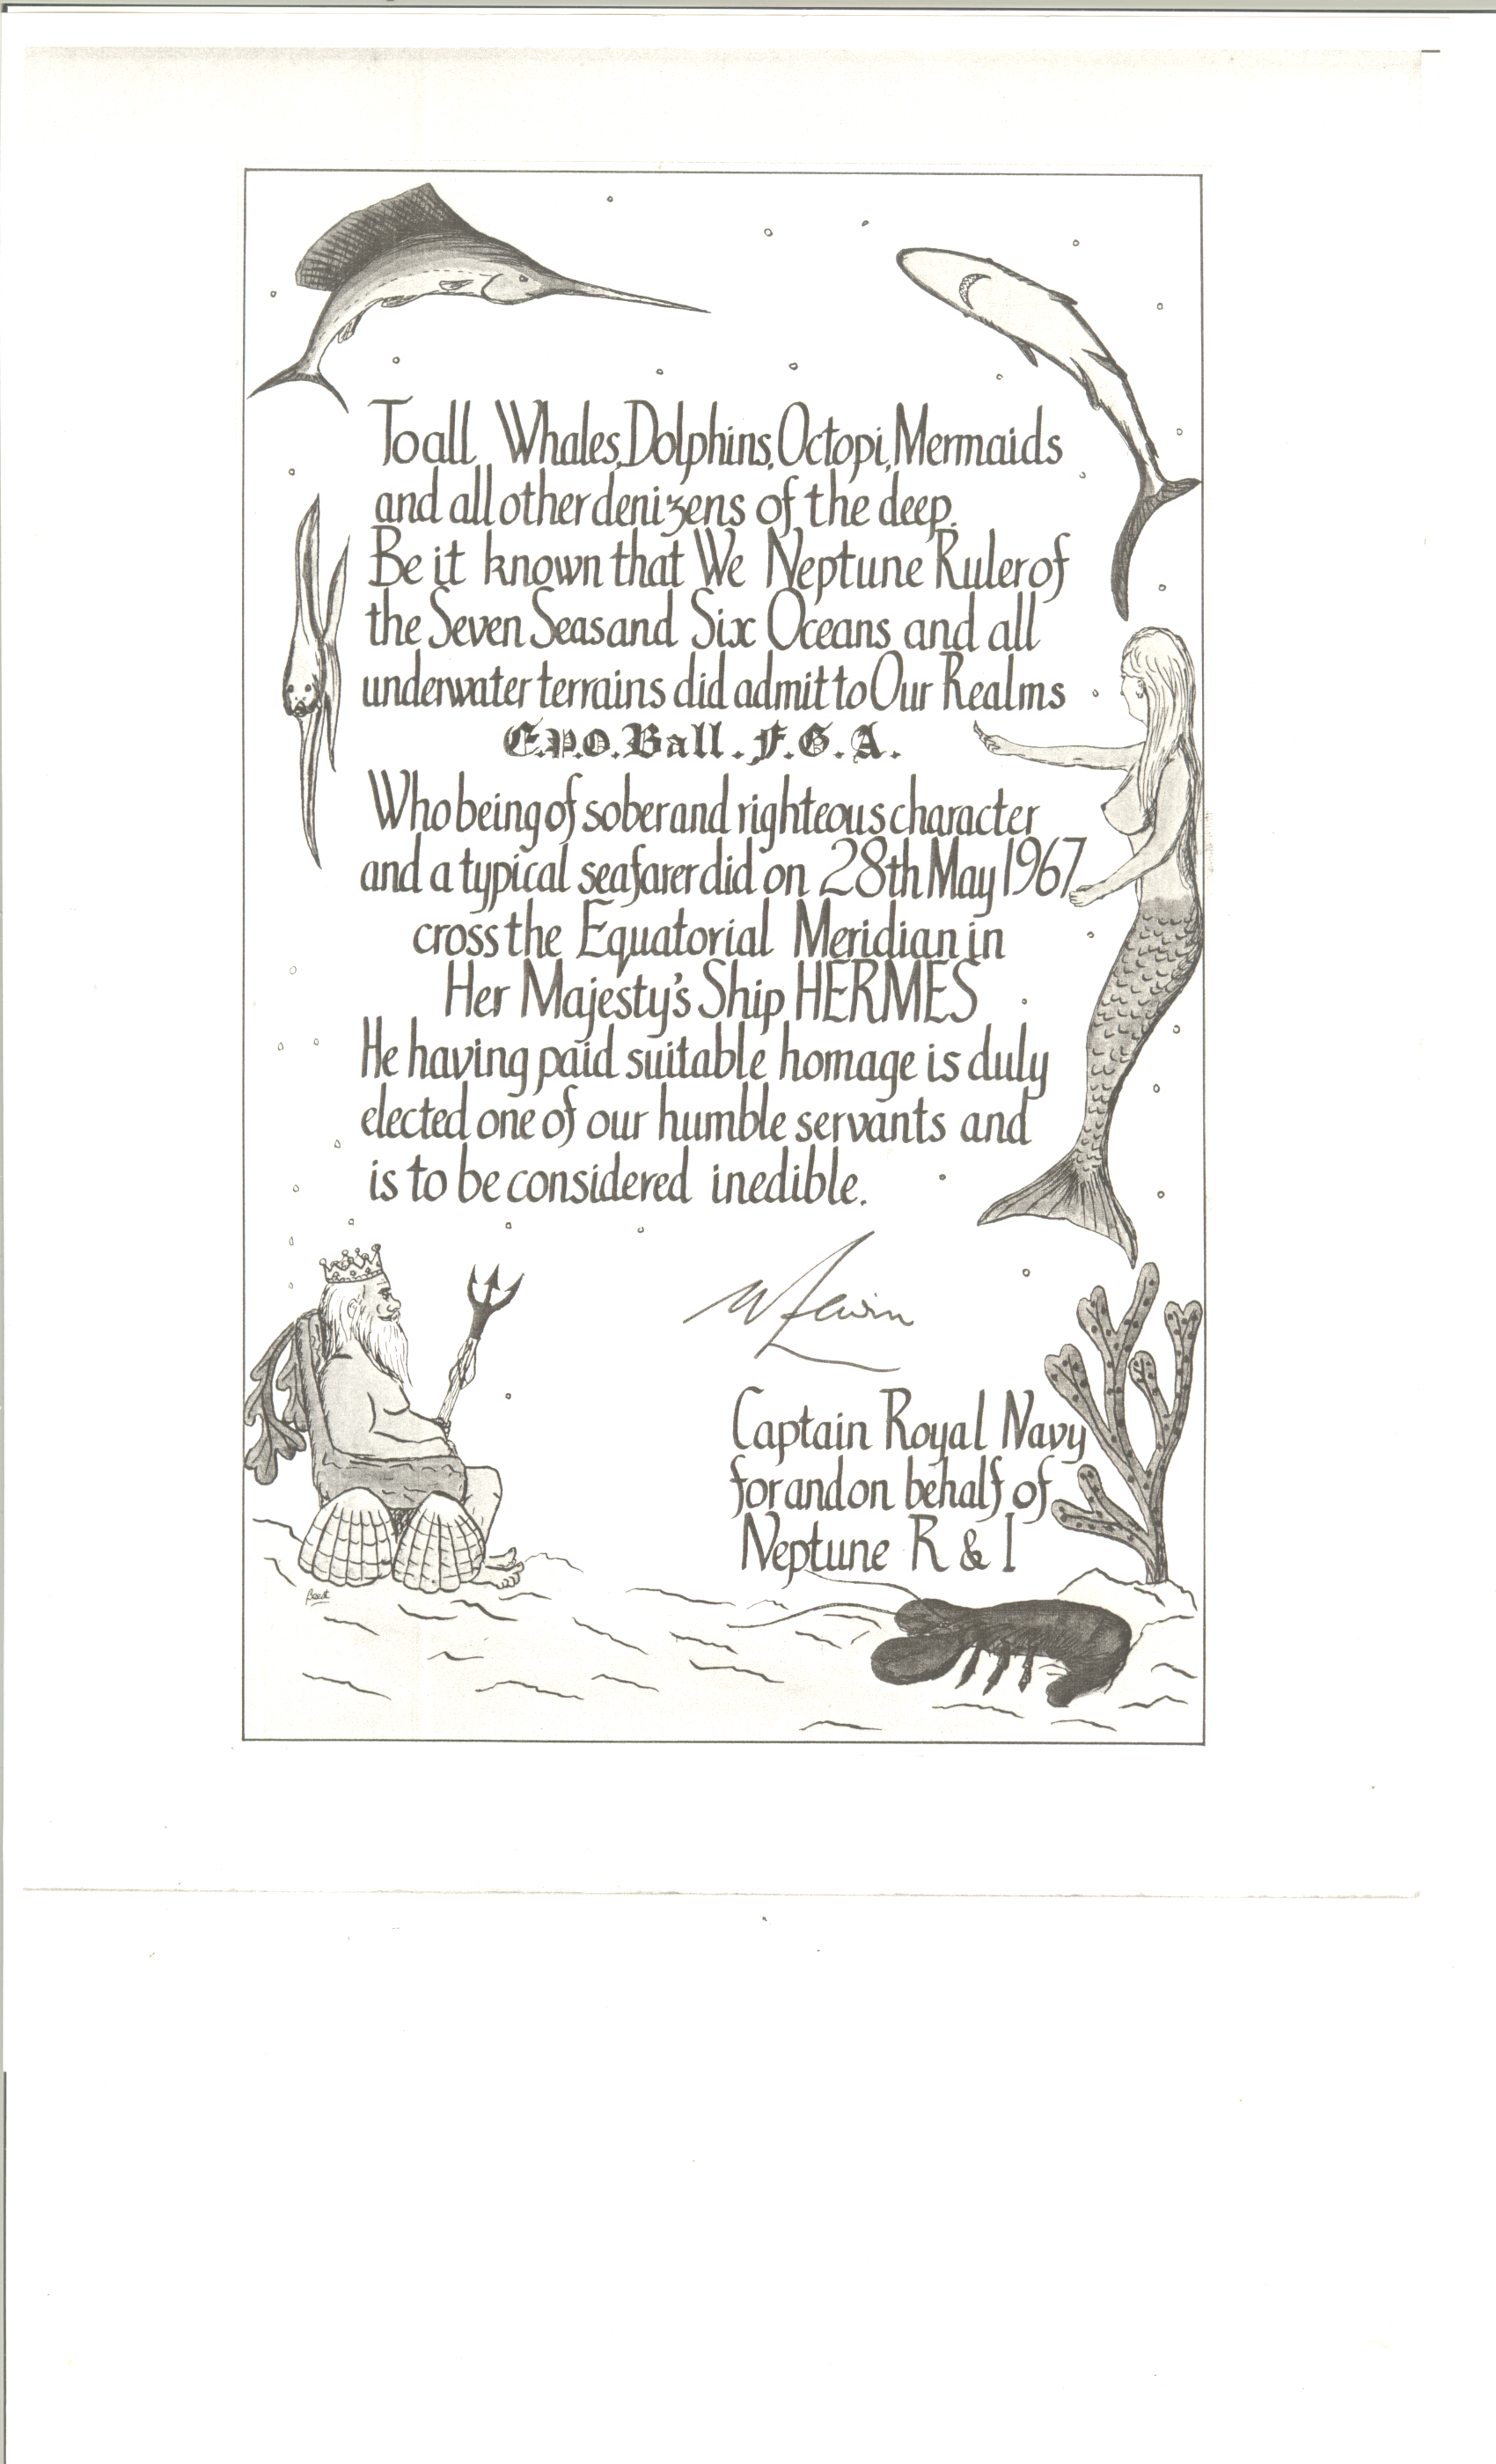 To all Whales, Dolphins, Octopi, Mermaids
and all other denizens of the deep.
Be it known that We Neptune Ruler of
the Seven Seas and Six Oceans and all
underwater terrains did admit to Our Realms
E.P.O. Ball. F.G.A.
Who being of sober and righteous character
and a typical seafarer did on 28th May 1967
cross the Equatorial Meridian in
Her Majesty's Ship HERMES
He having paid suitable homage is duly
elected one of our humble servants and
is to be considered inedible.
Captain Royal Navy
for and on behalf of
Neptune R & I